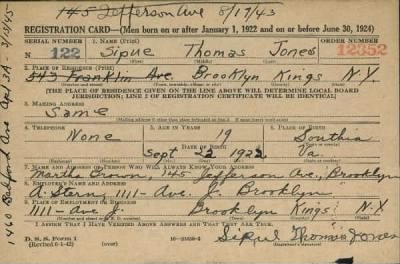 145 Jefferson Ave 8/17/43
REGISTRATION CARD—(Men born on or after January 1, 1922 and on or before June 30, 1924)
SERIAL NUMBER 1. NAME (Print) ORDER NUMBER
N 122 Sipue Thomas Jones 12352
(First) (Middle) (Last)
2. PLACE OF RESIDENCE (Print)
543 Franklin Ave. Brooklyn Kings N.Y.
(THE PLACE OF RESIDENCE GIVEN ON THE LINE ABOVE WILL DETERMINE LOCAL BOARD
JURISDICTION; LINE 2 OF REGISTRATION CERTIFICATE WILL BE IDENTICAL)
3. MAILING ADDRESS
Same
4. TELEPHONE 5. AGE IN YEARS 6. PLACE OF BIRTH
None 19 Southia
DATE OF BIRTH
Sept 22 1922 Va.
7. NAME AND ADDRESS OF PERSON WHO WILL ALWAYS KNOW YOUR ADDRESS
Martha Crown, 145 Jefferson Ave., Brooklyn
8. EMPLOYER'S NAME AND ADDRESS
A. Stern, 1111- Ave. J. Brooklyn
9. PLACE OF EMPLOYMENT OR BUSINESS
1111- Ave J. Brooklyn Kings N.Y.
I AFFIRM THAT I HAVE VERIFIED ABOVE ANSWERS AND THAT THEY ARE TRUE.
D. S. S. Form 1
(Revised 6-1-42)
Sipuel Thomas Jones
1460 Bedford Ave Apt 3A - 3/10/45